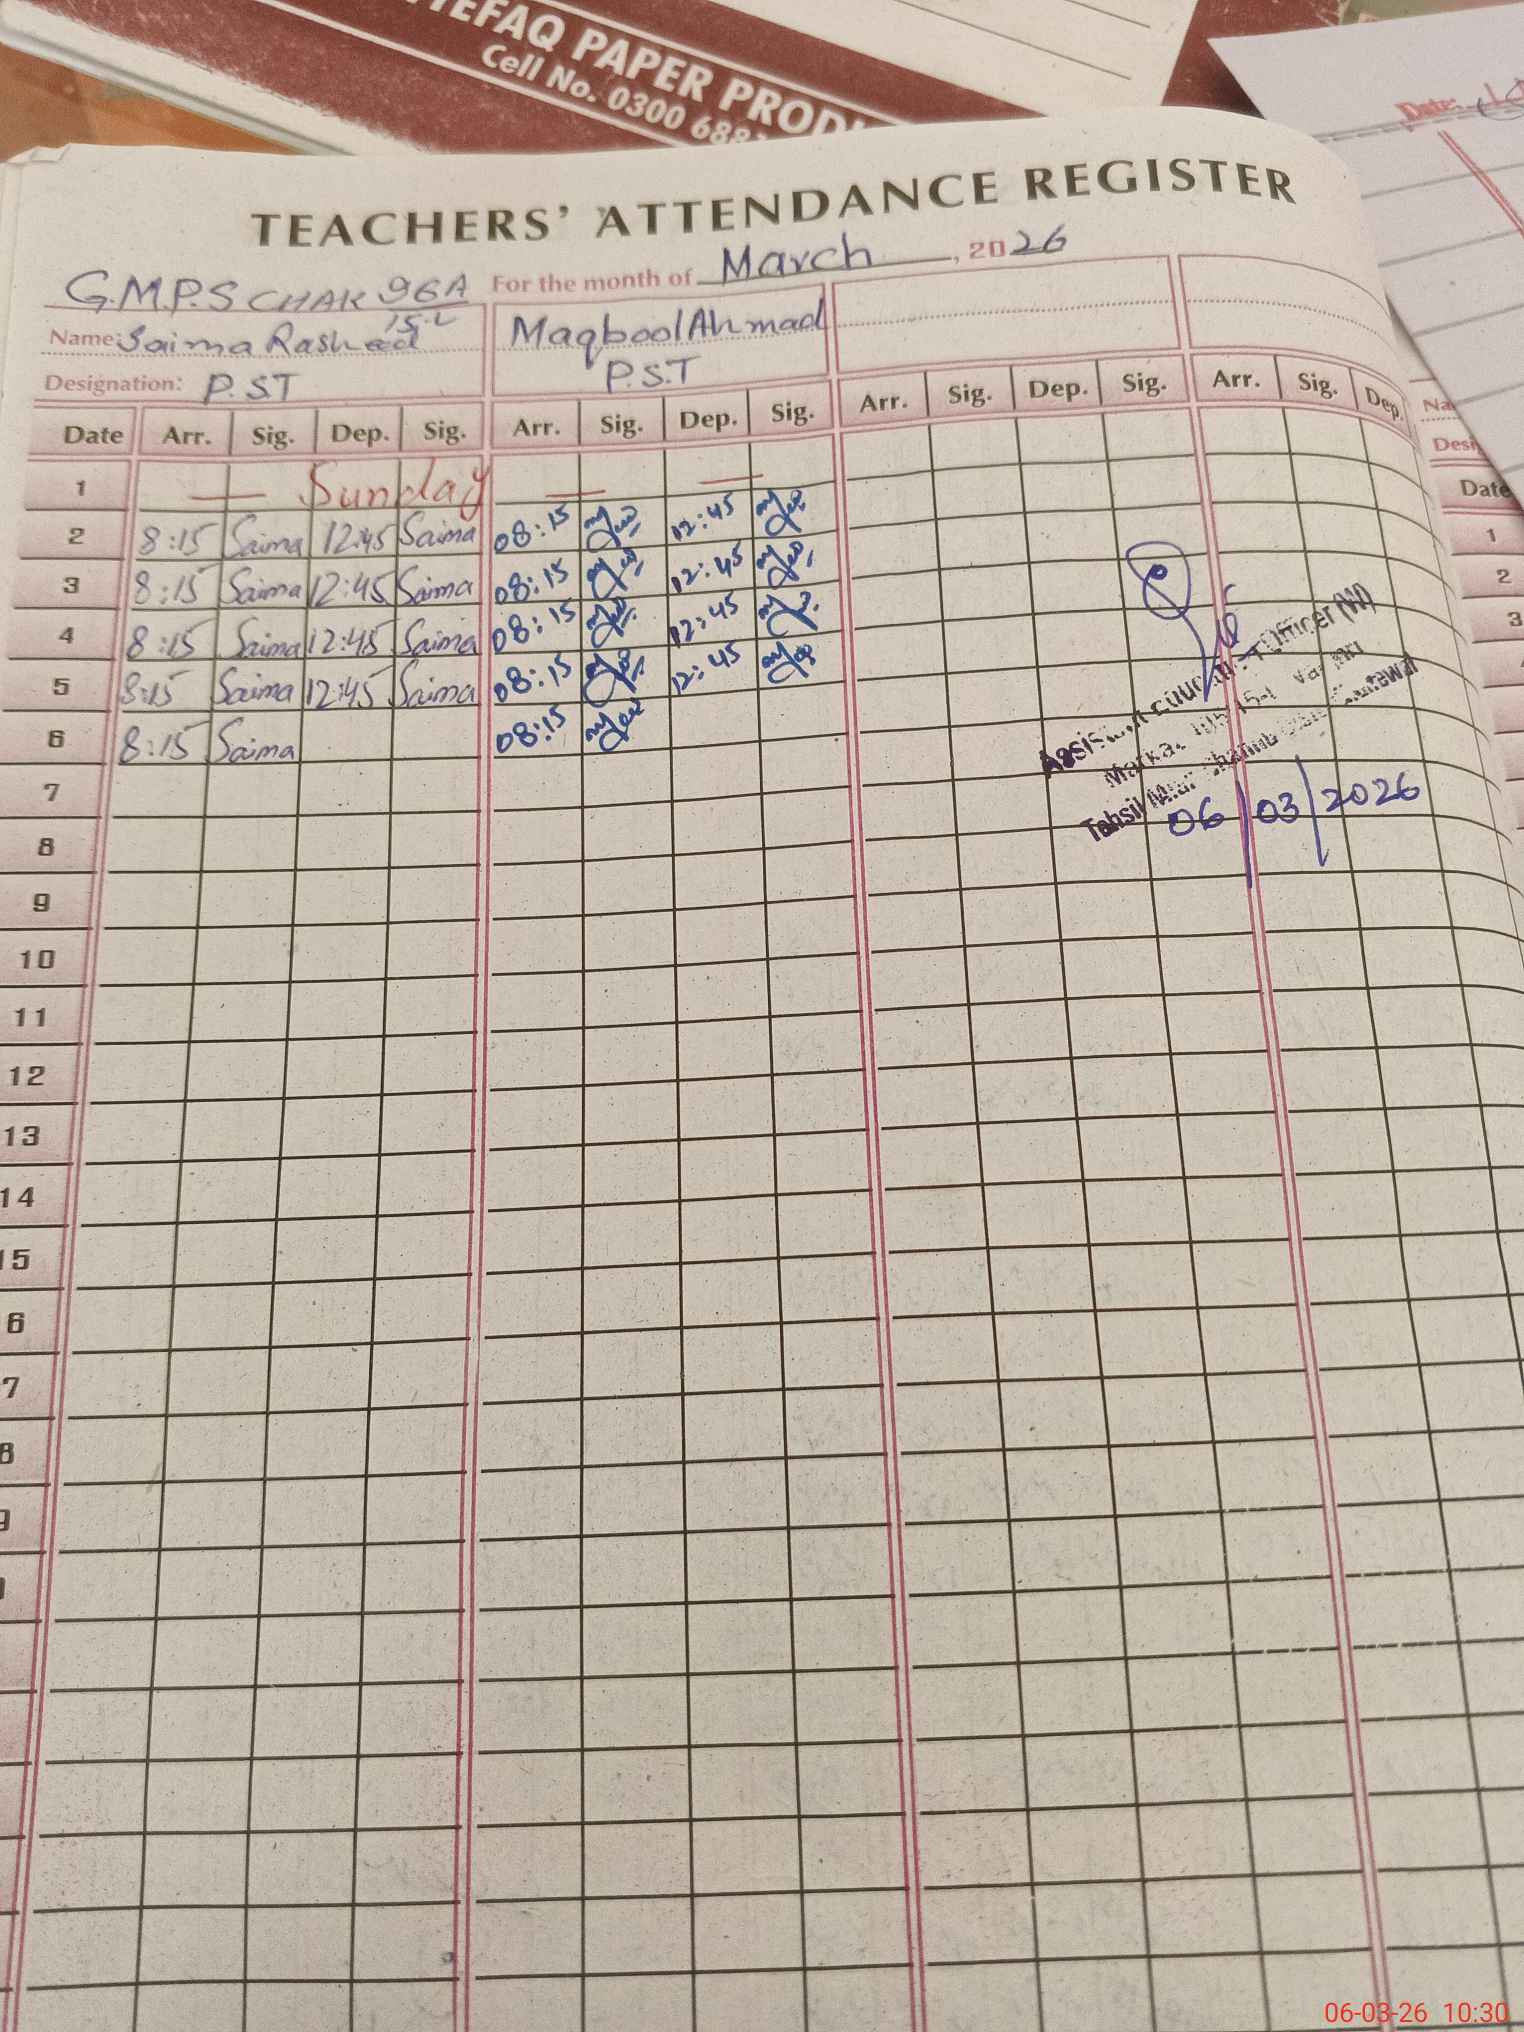 TTEFAQ PAPER PROD
Cell No. 0300 688
Date:
TEACHERS' ATTENDANCE REGISTER
G.M.P.S CHAK 96A For the month of March, 2026
15-L
Name: Saima Rasheed Maqbool Ahmad
Designation: P.S.T P.S.T
Date Arr. Sig. Dep. Sig. Arr. Sig. Dep. Sig. Arr. Sig. Dep. Sig. Arr. Sig. Dep.
1 — Sunday — —
2 8:15 Saima 12:45 Saima 08:15 12:45
3 8:15 Saima 12:45 Saima 08:15 12:45
4 8:15 Saima 12:45 Saima 08:15 12:45
5 8:15 Saima 12:45 Saima 08:15 12:45
6 8:15 Saima 08:15
Officer (W)
Tahsil
06/03/2026
7
8
9
10
11
12
13
14
15
6
7
8
9
Na
Desi
Date
1
2
3
06-03-26 10:30